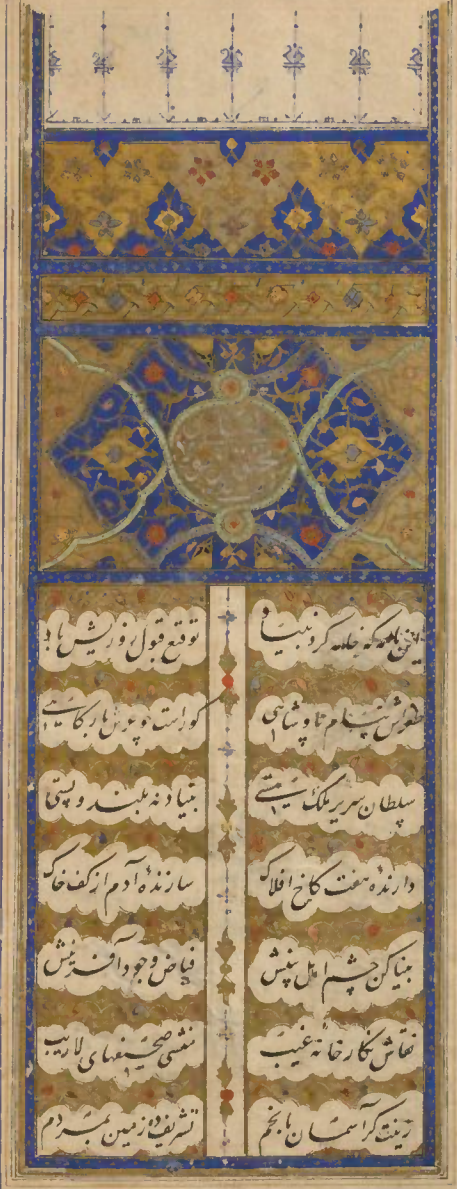 این نامه که خامه کرد بنیاد توقیع قبول روزیش باد
طغراش بنام پادشاهی کوراست چو عرش بارگاهی
سلطان سریر ملک هستی بنیاد نه بلند و پستی
دارندهٔ هفت کاخ افلاک سازندهٔ آدم از کف خاک
بینا کن چشم اهل بینش فیاض وجود آفرینش
نقاش نگارخانهٔ غیب منشی صحیفهای لاریب
زینت گر آسمان بانجم تشریف ده زمین بمردم